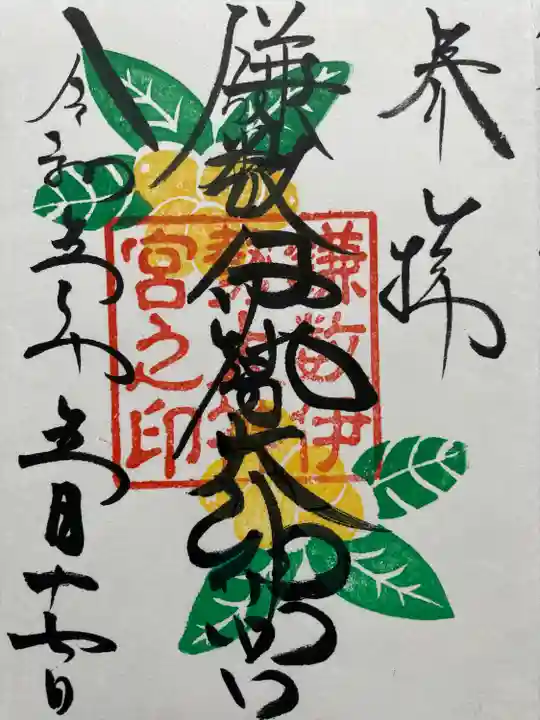 参拝
鎌数伊勢大神宮
令和五年五月十七日
鎌数伊
勢大神
宮之印